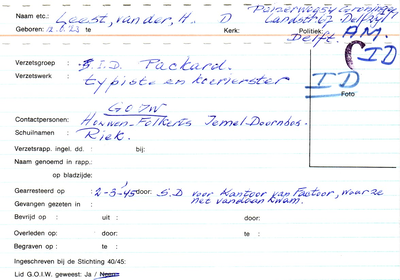 Naam etc.: Geest, van der, H. D
Landst. 67 Delfzijl
Geboren: 12.8.23 te Kerk: Politiek: A.M.
Delft.
ID
Verzetsgroep : S.I.D. Packard.
Verzetswerk : typiste en koerierster
ID
Foto
GOUW
Contactpersonen: Houwen-Folkerts Jemel-Doornbos.
Schuilnaam : Riek.
Verzetsrapp. ingel. dd. : bij:
Naam genoemd in rapp.:
op bladzijde:
Gearresteerd op : 2-3-45 door: S.D voor Kantoor van Factoor, waar ze
Gevangen gezeten in : net vandaan kwam.
Bevrijd op : uit : door:
Overleden op : te : door:
Begraven op : te :
Ingeschreven bij de Stichting 40/45:
Lid G.O.I.W. geweest: Ja / Neen